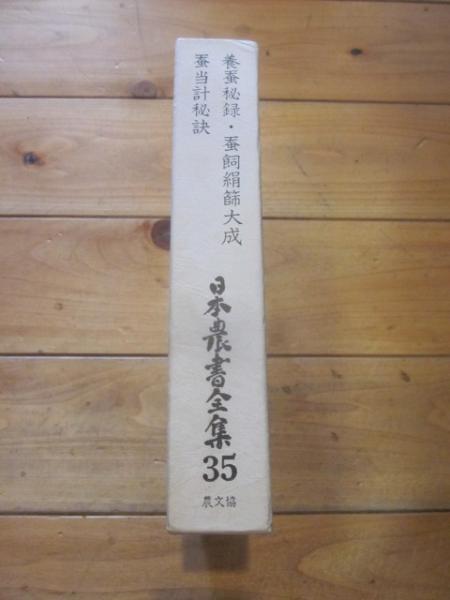 養蚕秘録・蚕飼絹篩大成
蚕当計秘訣
日本農書全集
35
農文協